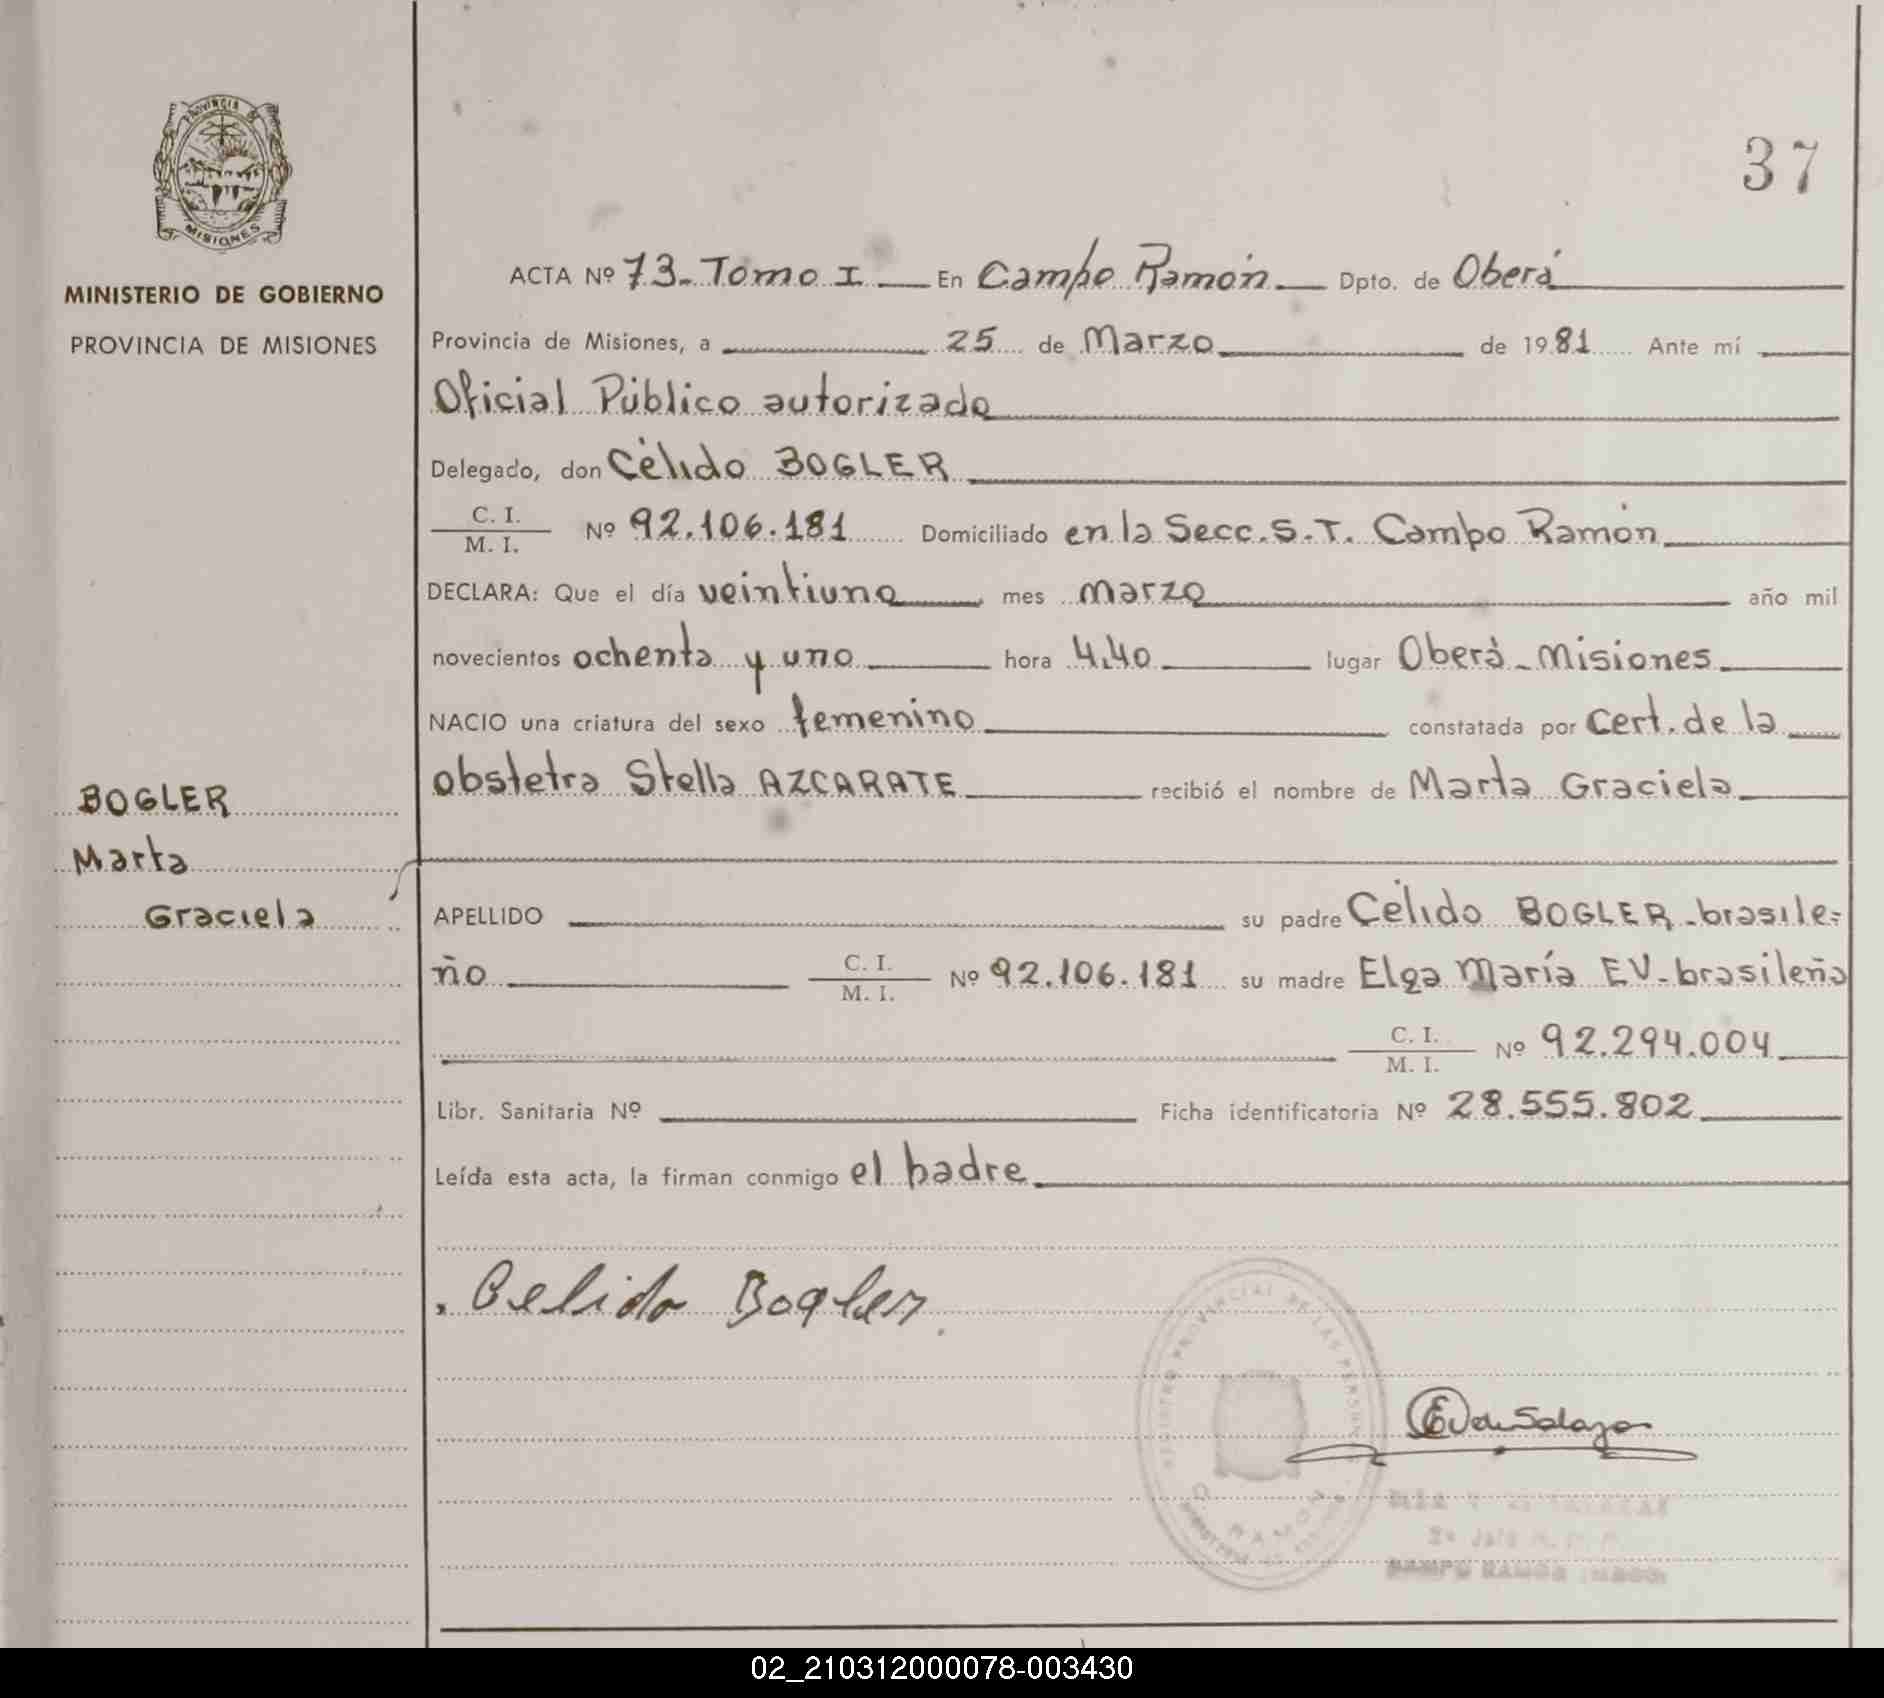 PROVINCIA DE
MISIONES
MINISTERIO DE GOBIERNO
PROVINCIA DE MISIONES
37
ACTA Nº 73. Tomo I En Campo Ramón Dpto. de Oberá
Provincia de Misiones, a 25 de Marzo de 1981 Ante mí
Oficial Público autorizado
Delegado, don Célido BOGLER
C. I.
M. I. Nº 92.106.181 Domiciliado en la Secc. S.T. Campo Ramón
DECLARA: Que el día veintiuno mes marzo año mil
novecientos ochenta y uno hora 4,40 lugar Oberá - Misiones
NACIO una criatura del sexo femenino constatada por Cert. de la
obstetra Stella AZCARATE recibió el nombre de Marta Graciela
BOGLER
Marta
Graciela
APELLIDO su padre Célido BOGLER - brasile=
ño C. I.
M. I. Nº 92.106.181 su madre Elga María EV - brasileña
C. I.
M. I. Nº 92.294.004
Libr. Sanitaria Nº Ficha identificatoria Nº 28.555.802
Leída esta acta, la firman conmigo el padre
Celido Bogler
REGISTRO PROVINCIAL DE LAS PERSONAS
RAMON
de Salazar
CAMPO RAMON
02_210312000078-003430